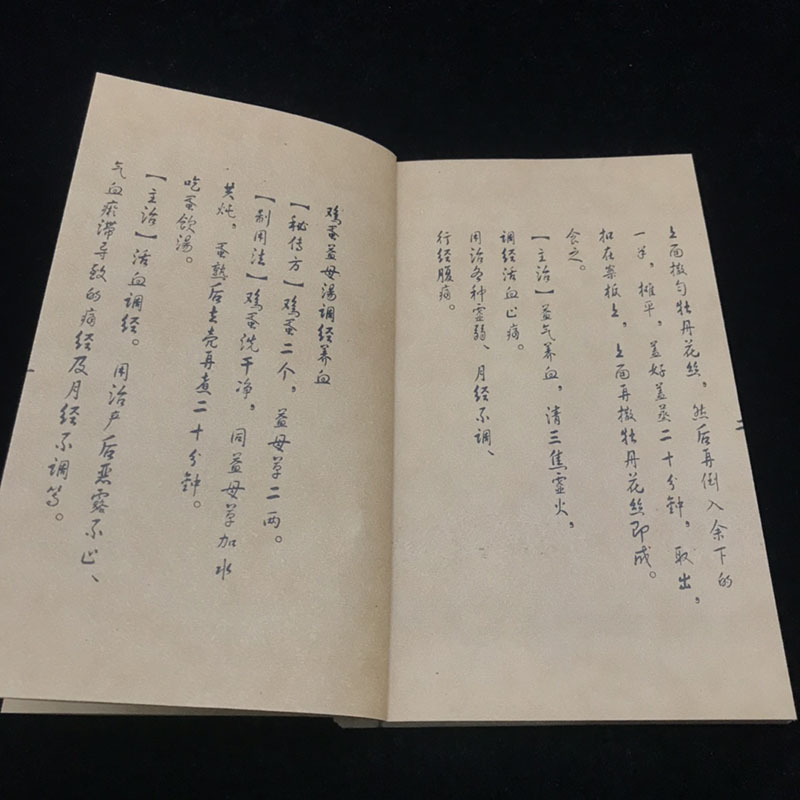 上面撒匀牡丹花丝，然后再倒入余下的
一半，摊平，盖好盖蒸二十分钟，取出，
扣在案板上，上面再撒牡丹花丝即成。
食之。
【主治】益气养血，清三焦虚火，
调经活血止痛。
用治各种虚弱、月经不调、
行经腹痛。
鸡蛋益母汤调经养血
【秘传方】鸡蛋二个，益母草二两。
【制用法】鸡蛋洗干净，同益母草加水
共炖，蛋熟后去壳再煮二十分钟。
吃蛋饮汤。
【主治】活血调经。用治产后恶露不止、
气血瘀滞导致的痛经及月经不调等。